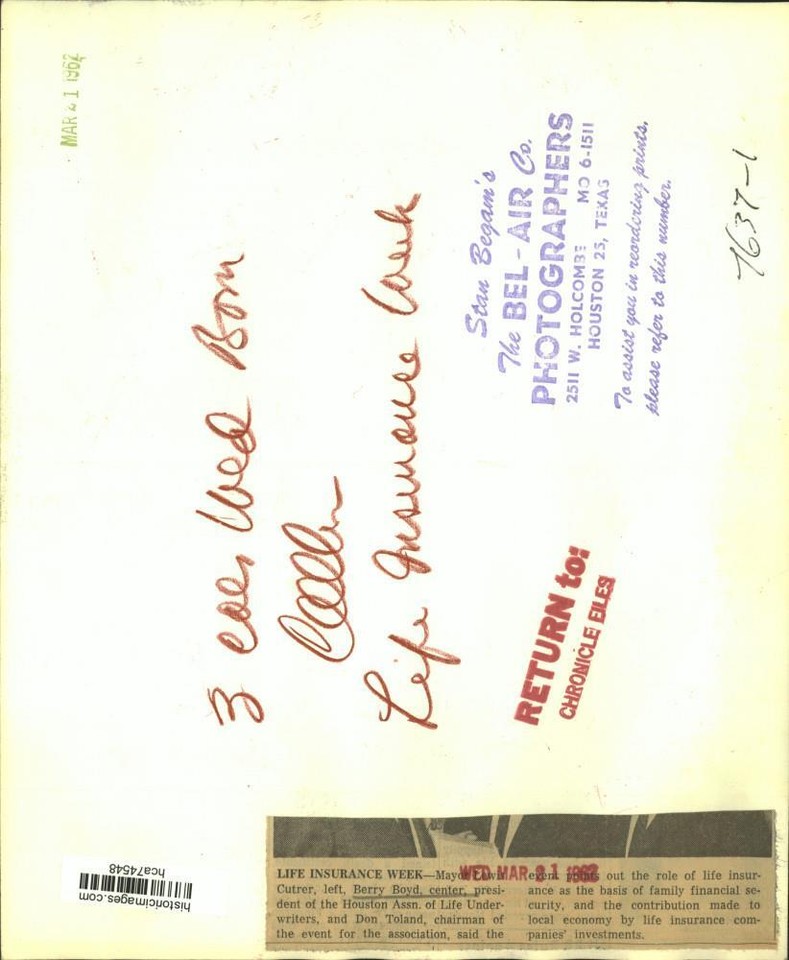 MAR 21 1962
3 col, Wed Bom
Life Insurance Week
Stan Begam's
The BEL-AIR Co.
PHOTOGRAPHERS
2511 W. HOLCOMBE MO 6-1511
HOUSTON 25, TEXAS
To assist you in reordering prints,
please refer to this number.
7637-1
RETURN to:
CHRONICLE FILES
historicimages.com
hca74548
WED MAR 21 1962
LIFE INSURANCE WEEK—Mayor Lewis
Cutrer, left, Berry Boyd, center, presi-
dent of the Houston Assn. of Life Under-
writers, and Don Toland, chairman of
the event for the association, said the
event points out the role of life insur-
ance as the basis of family financial se-
curity, and the contribution made to
local economy by life insurance com-
panies' investments.